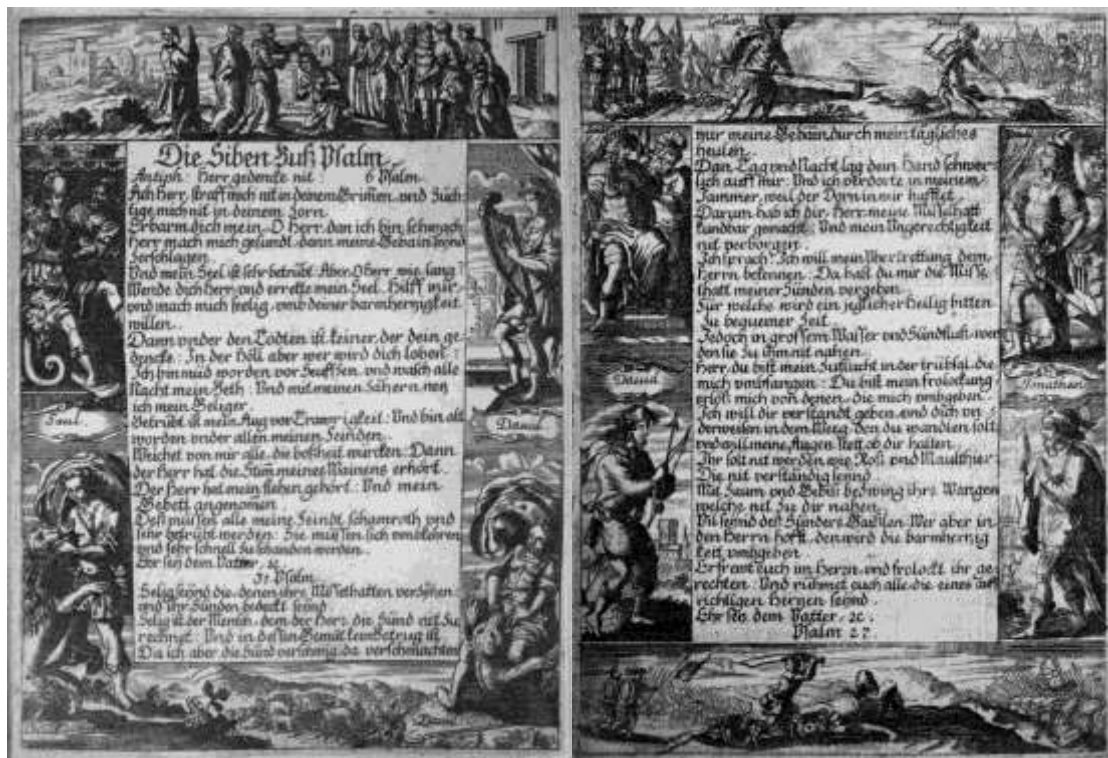 Die Siben Buß Psalm
Antiph: Herr gedencke nit 6 Psalm
Ach Herr, straff mich nit in deinem Grimmen, vnd Züch-
tige mich nit in deinem Zorn
Erbarm dich mein O Herr, dan ich bin schwach
Herr mach mich gesundt, dann meine Gebain seind
Zerschlagen
Vnd mein Seel ist sehr betrübt: Aber O Herr, wie lang?
Wende dich Herr vnd errette mein Seel. Hilff mir
vnd mach mich seelig, vmb deiner barmhertzigkeit
willen.
Dann vnder den Todten ist keiner, der dein ge-
dencke: In der Höll aber wer wird dich loben?
Ich bin müd worden vor Seuffzen, vnd wasch alle
Nacht mein Beth: Vnd mit meinen Zähern netz
ich mein Geliger.
Betrübt ist mein Aug vor Trawrigkeit: Vnd bin alt
worden vnder allen meinen Feinden.
Weichet von mir alle, die boßheit würcken: Dann
der Herr hat die Stim meines Wainens erhört.
Der Herr hat mein flehen gehört: Vnd mein
Gebett angenomen
Deß müssen alle meine Feindt schamroth vnd
sehr betrübt werden: Sie müssen sich vmbkehren
vnd sehr schnell Zuschanden werden.
Ehr sey dem Vatter, 2c
31 Psalm
Selig seynd die, denen ihre Missethatten verzihen
vnd ihr Sünden bedeckt seind
Selig ist der Mensch, dem der Herr die Sünd nit Zu
rechnet: Vnd in dessen Gemüt kein betrug ist
Da ich aber die Sünd verschwig, da verschmachten
Saul.
Dauid
Dauid
Goliath
Dauid
mir meine Gebain, durch mein tägliches
heulen.
Dan Tag vnd Nacht lag dein Hand schwer-
lich auff mir: Vnd ich verdorte in meinem
Jammer, weil der Dorn in mir hafftet
Darum hab ich dir, Herr meine Missethatt
kundbar gemacht: Vnd mein Vngerechtigkeit
nit verborgen.
Ich sprach: Ich will mein Vbertrettung dem
Herrn bekennen: Da hast du mir die Misse-
thatt meiner Sünden vergeben.
Für welche wird ein jeglicher Heilig bitten
Zu bequemer Zeit
Jedoch in grossem Wasser vnd Sündfluß wer
den sie Zu ihm nit nahen.
Herr, du bist mein Zuflucht in der trübsal, die
mich vmbfangen: Du bist mein frolockung
erlöß mich von denen, die mich vmbgeben.
Ich will dir verstandt geben, vnd dich vn
derweisen in dem Weeg, den du wandlen solt
vnd will meine Augen stett ob dir halten.
Ihr solt nit werden wie Roß vnd Maulthier:
Die nit verständig seynd
Mit Zaum vnd Gebiß bezwing ihre Wangen
welche nit Zu dir nahen.
Vil seynd deß Sünders Gaißlen: Wer aber in
den Herrn hofft, den wird die barmhertzig
keit vmbgeben
Erfrewt euch im Herzn, vnd frolockt ihr ge-
rechten: Vnd rühmet euch alle, die eines auf
richtigen Hertzen seynd.
Ehr sey dem Vatter, 2c.
Psalm 27
Dauid
Jonathan